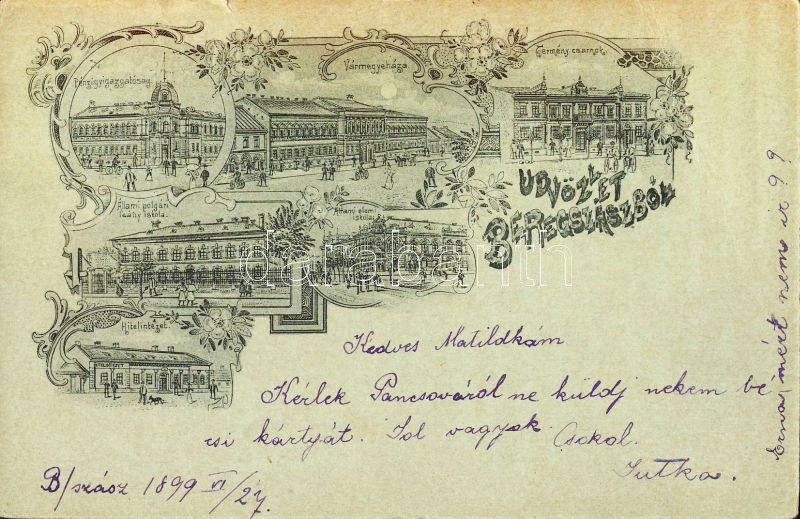 Pénzügyigazgatóság.
Vármegyeháza
Termény csarnok.
ÜDVÖZLET
BEREGSZÁSZBÓL
Állami polgári
leány iskola.
Állami elemi
iskola.
Hitelintézet.
darabanth
Kedves Matildkám
Kérlek Pancsováról ne küldj nekem bé
csi kártyát. Jol vagyok. Csokol.
Jutka.
B/szász 1899 VI/27.
mért nem ir ??